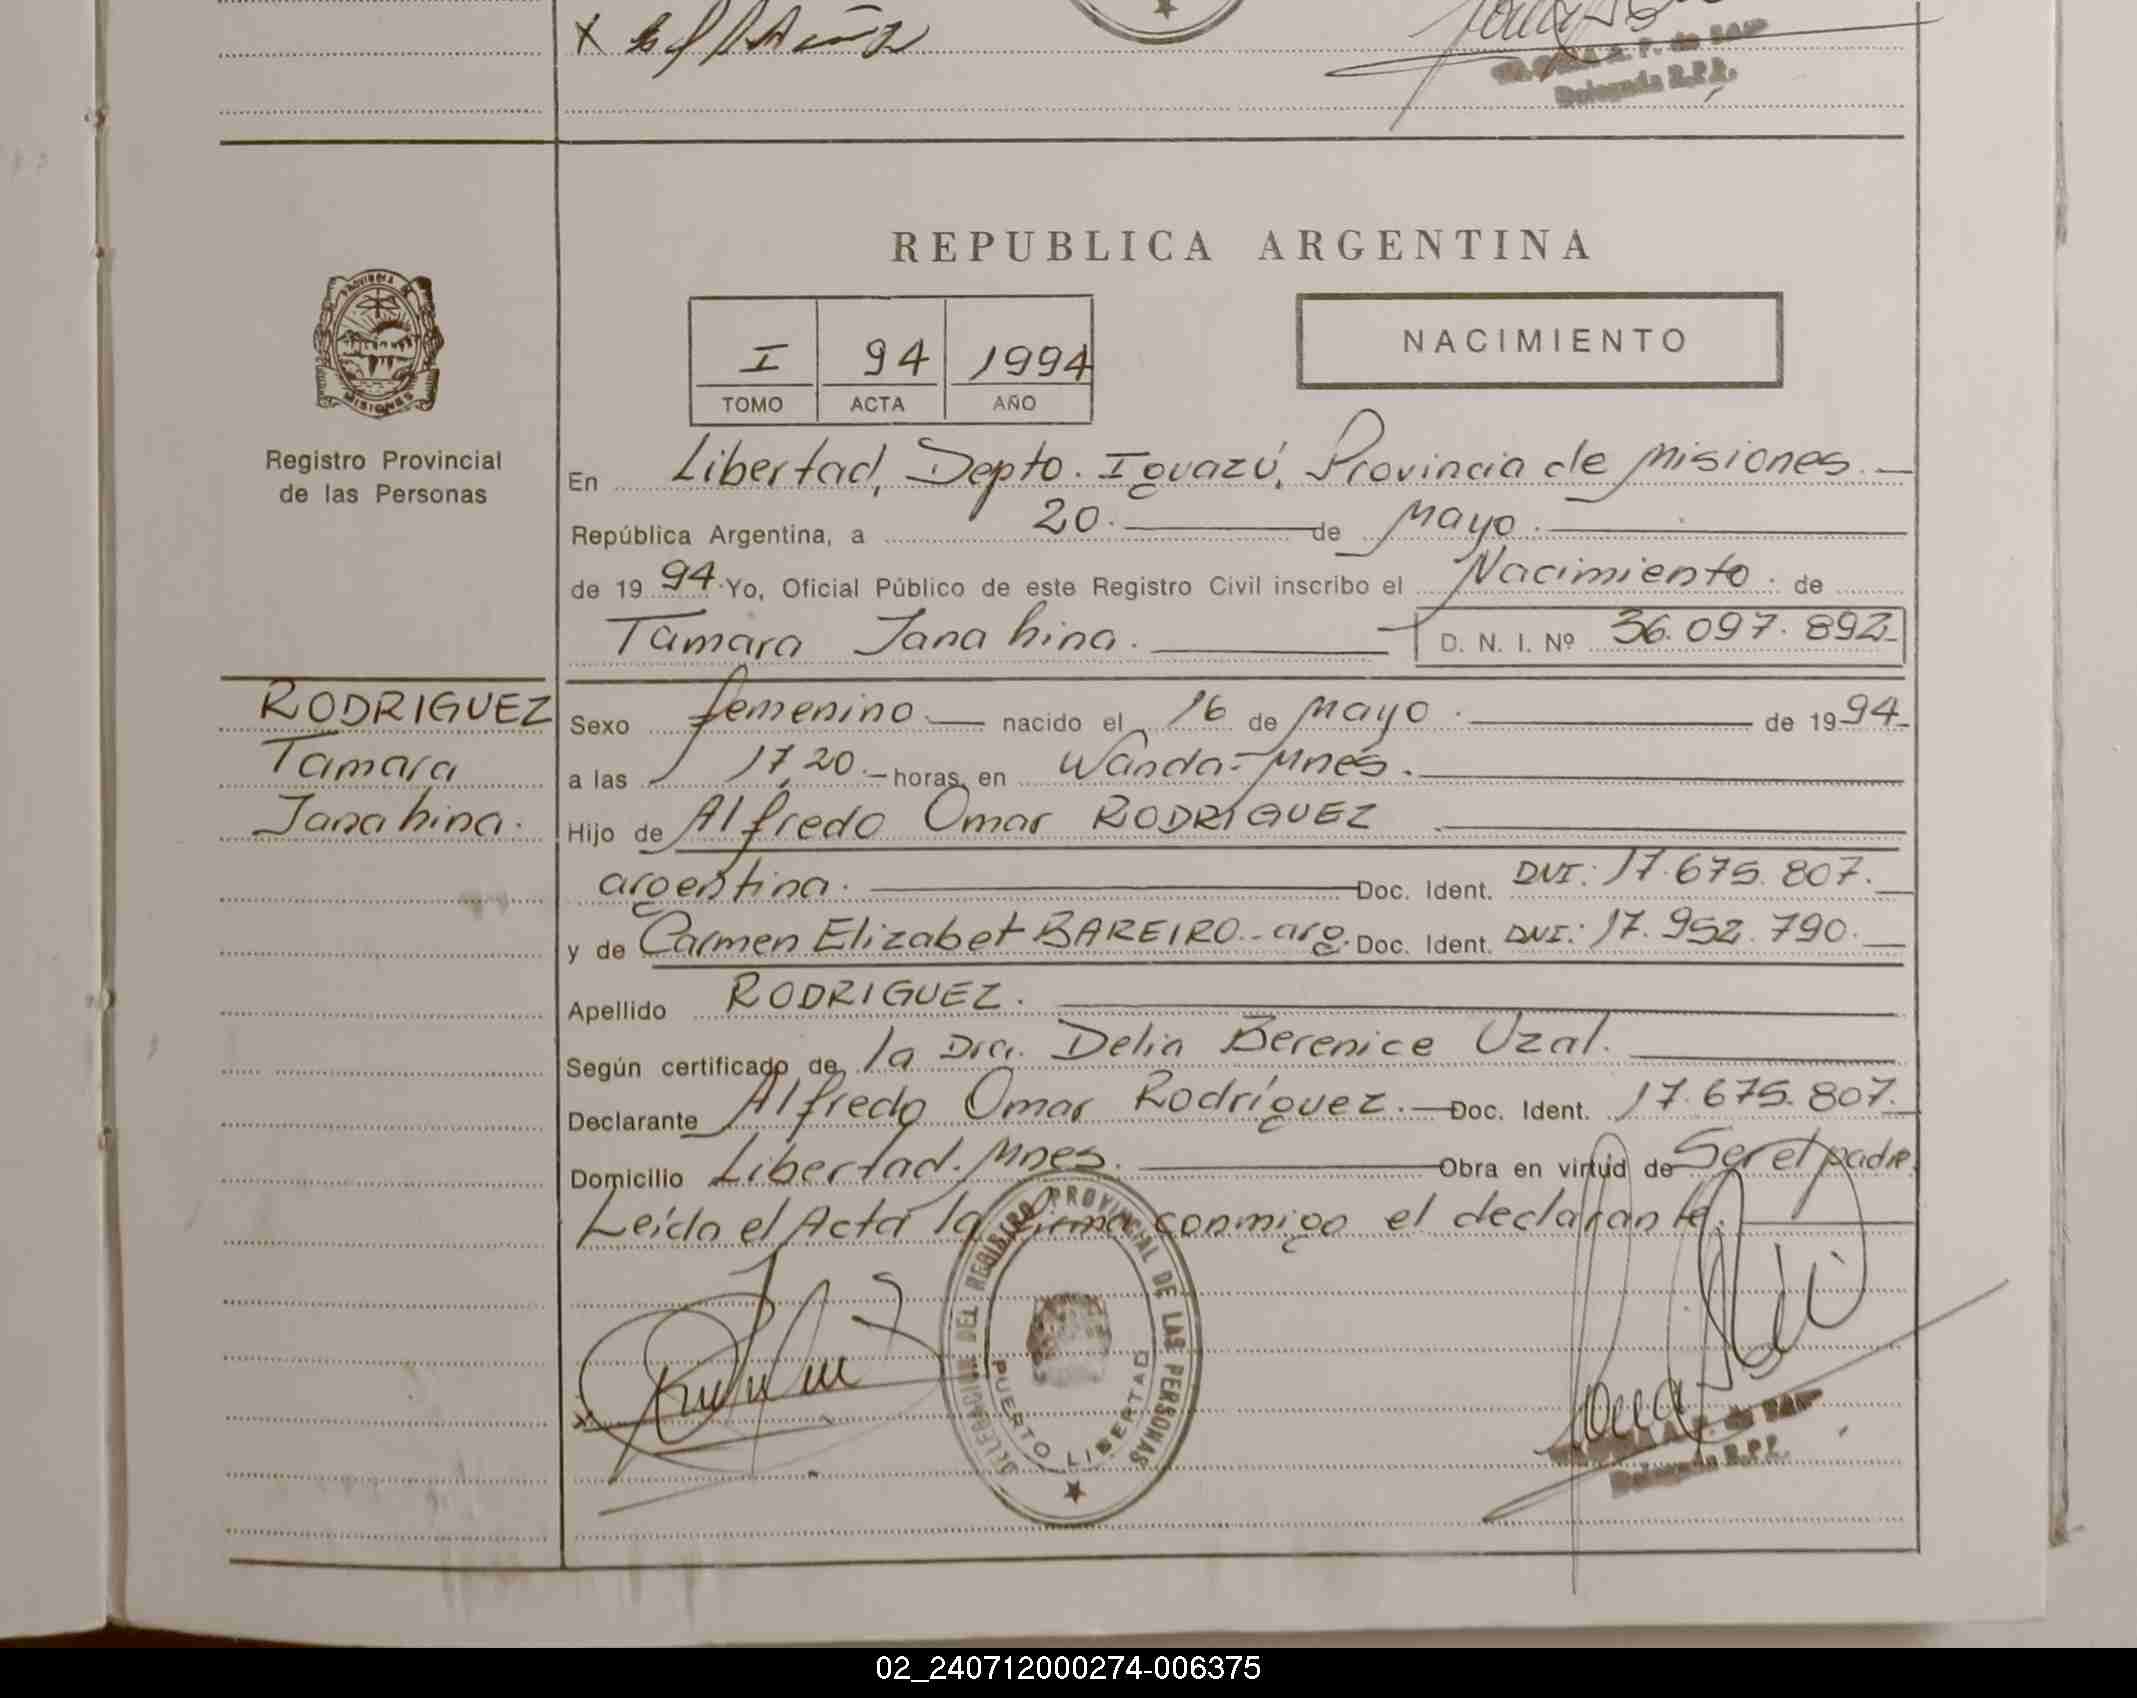 Delegada R.P.P.
REPUBLICA ARGENTINA
PROVINCIA DE
MISIONES
Registro Provincial
de las Personas
I 94 1994
TOMO ACTA AÑO
NACIMIENTO
En Libertad, Depto. Iguazú, Provincia de Misiones.
República Argentina, a 20. de Mayo.
de 19 94 Yo, Oficial Público de este Registro Civil inscribo el Nacimiento. de
Tamara Janahina. D. N. I. Nº 36.097.892
RODRIGUEZ
Tamara
Janahina.
Sexo femenino nacido el 16 de Mayo. de 19 94
a las 17,20. horas, en Wanda-Mnes.
Hijo de Alfredo Omar RODRIGUEZ
argentina. Doc. Ident. DNI: 17.675.807.
y de Carmen Elizabet BAREIRO - arg. Doc. Ident. DNI: 17.952.790.
Apellido RODRIGUEZ.
Según certificado de la Dra. Delia Berenice Uzal.
Declarante Alfredo Omar Rodríguez. Doc. Ident. 17.675.807.
Domicilio Libertad. Mnes. Obra en virtud de Ser el padre.
Leída el Acta la firma conmigo el declarante.
DELEGACION DEL REGISTRO PROVINCIAL DE LAS PERSONAS
PUERTO LIBERTAD
Delegada R.P.P.
02_240712000274-006375